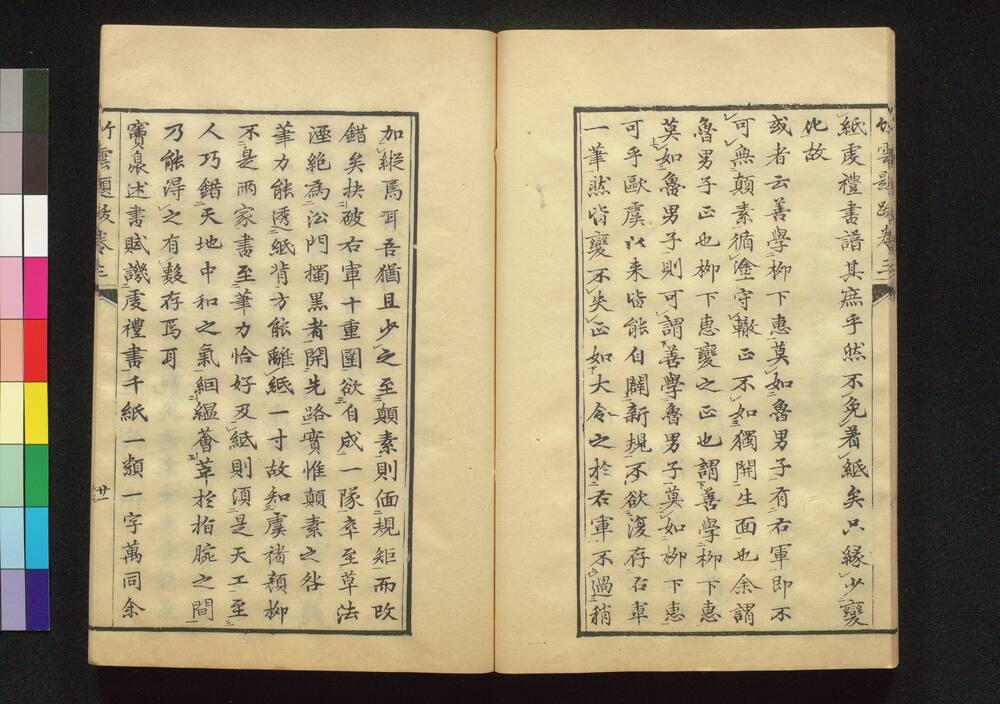 竹雲題跋卷三
紙虔禮書譜其庶乎然不免着紙矣只緣少變
化故
或者云善學柳下惠莫如魯男子有右軍即不
可無顛素循塗守轍正不如獨開生面也余謂
魯男子正也柳下惠變之正也謂善學柳下惠
莫如魯男子則可謂善學魯男子莫如柳下惠
可乎歐虞以来皆能自闢新規不欲復存右軍
一筆然皆變不失正如大令之於右軍不過稍
加縱焉耳吾猶且少之至顛素則偭規矩而改
錯矣抉破右軍十重圍欲自成一隊卒至草法
湮絶為沿門擉黑者開先路實惟顛素之咎
筆力能透紙背方能離紙一寸故知虞褚顔柳
不是兩家書至筆力恰好及紙則須是天工至
人巧錯天地中和之氣絪縕薈萃於指腕之間
乃能得之有數存焉耳
竇臮述書賦譏虔禮書千紙一類一字萬同余
竹雲題跋卷三
廿一